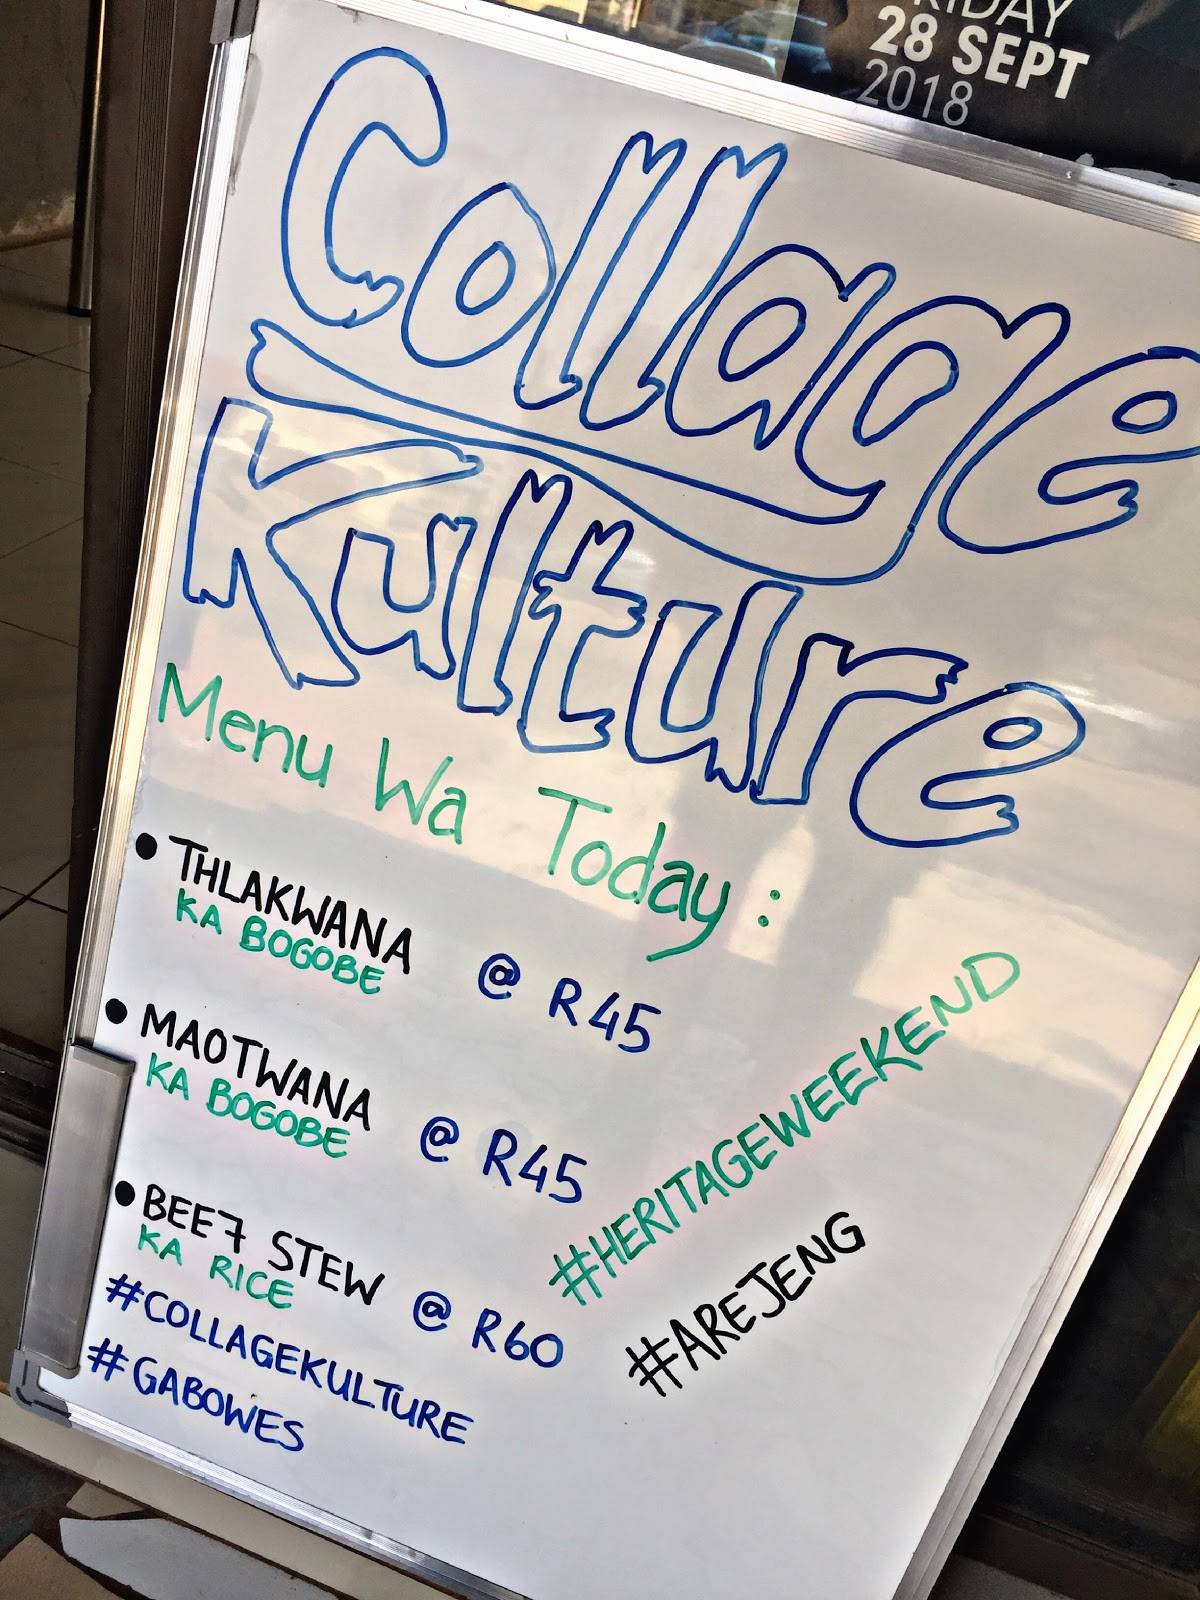 FRIDAY
28 SEPT
2018
Collage
Kulture
Menu Wa Today :
• THLAKWANA
KA BOGOBE @ R45
• MAOTWANA
KA BOGOBE @ R45
• BEEF STEW
KA RICE @ R60
#COLLAGEKULTURE
#GABOWES
#HERITAGEWEEKEND
#AREJENG